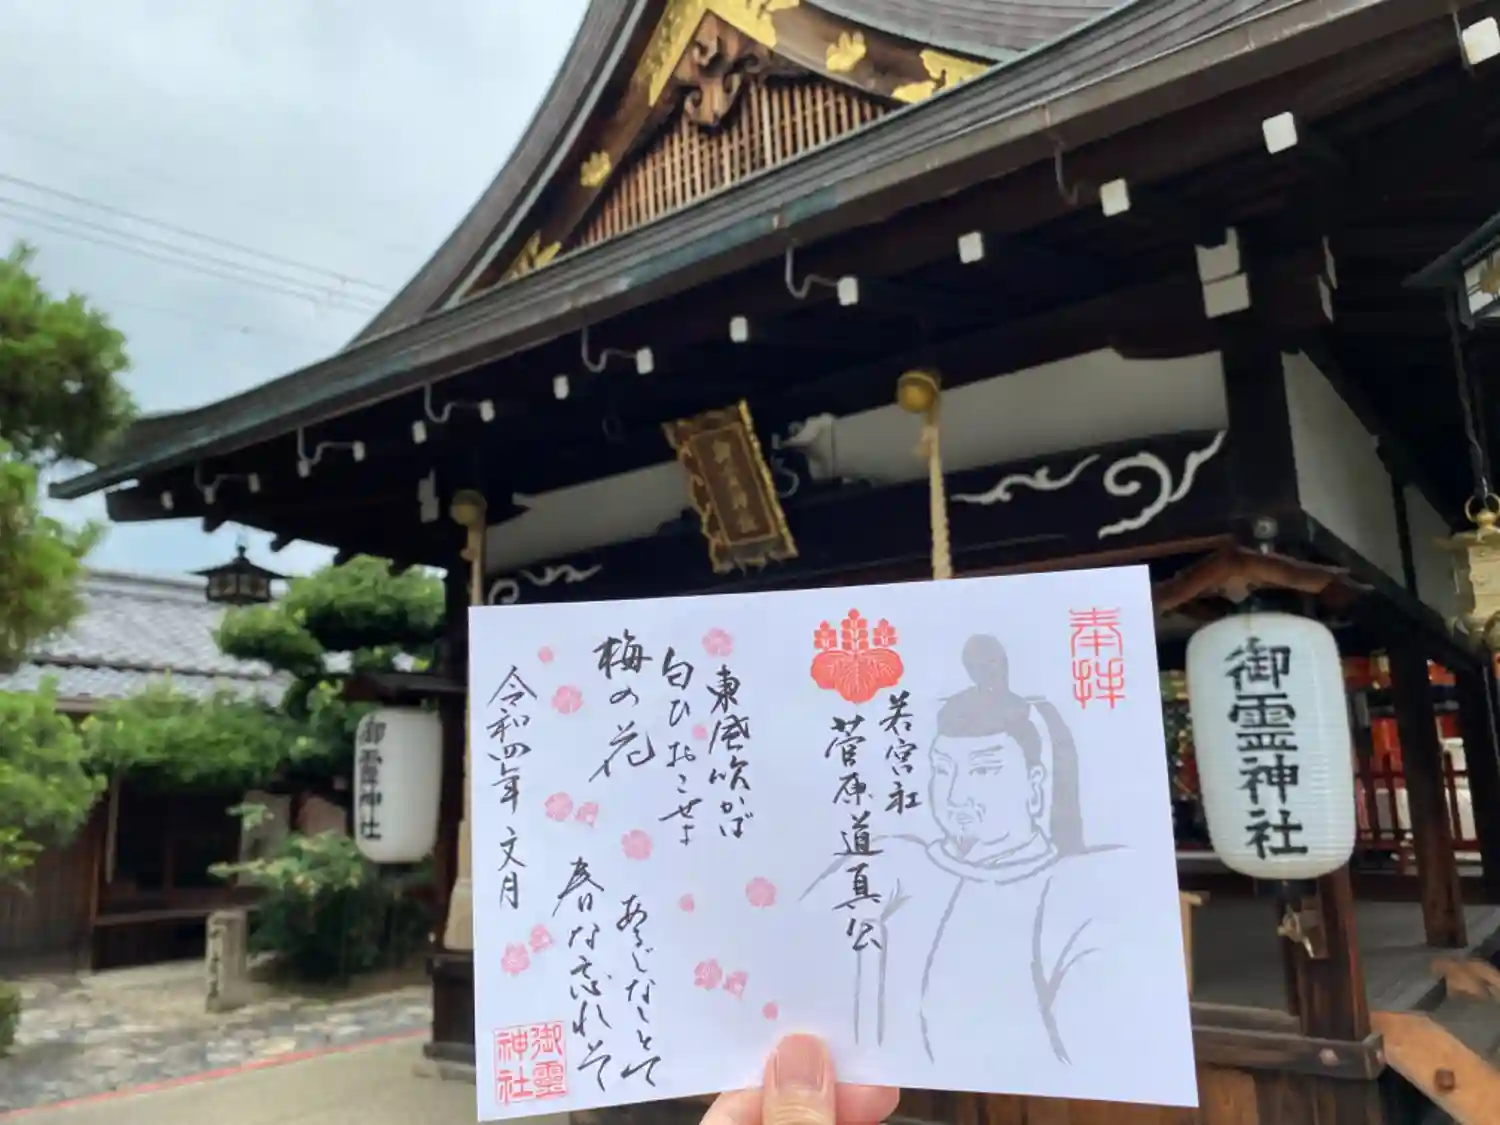 御霊神社
奉拝
若宮社
菅原道真公
東風吹かば
匂ひおこせよ
梅の花
あるじなしとて
春な忘れそ
令和四年 文月
御霊神社
御霊神社
御霊神社